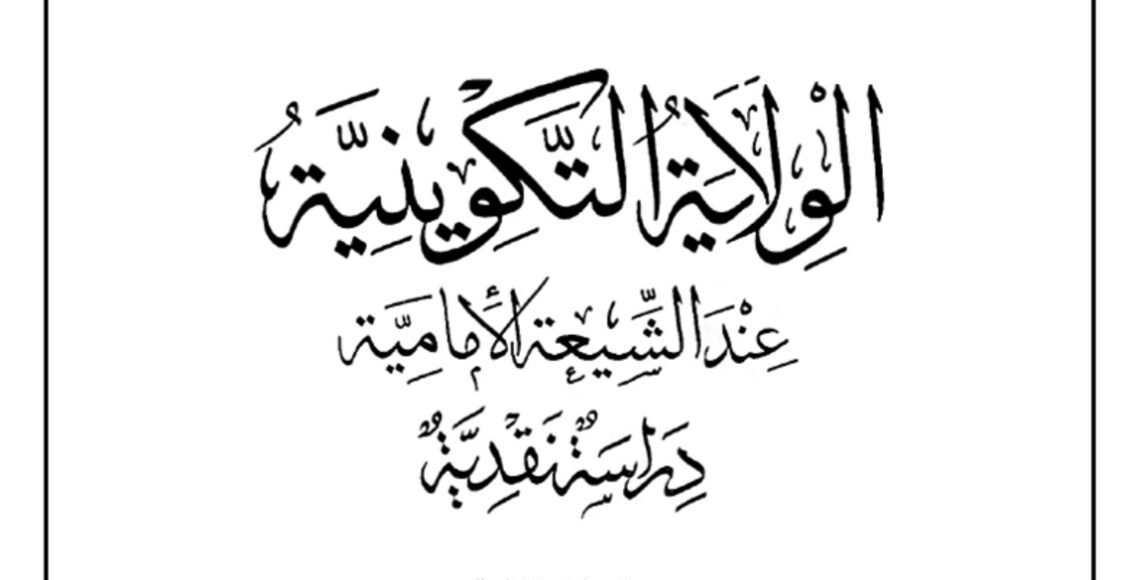 الْوِلَايَةُ التَّكْوِينِيَّةُ
عِنْدَ الشِّيعَةِ الْأَمَامِيَّةِ
دِرَاسَةٌ نَقْدِيَّةٌ